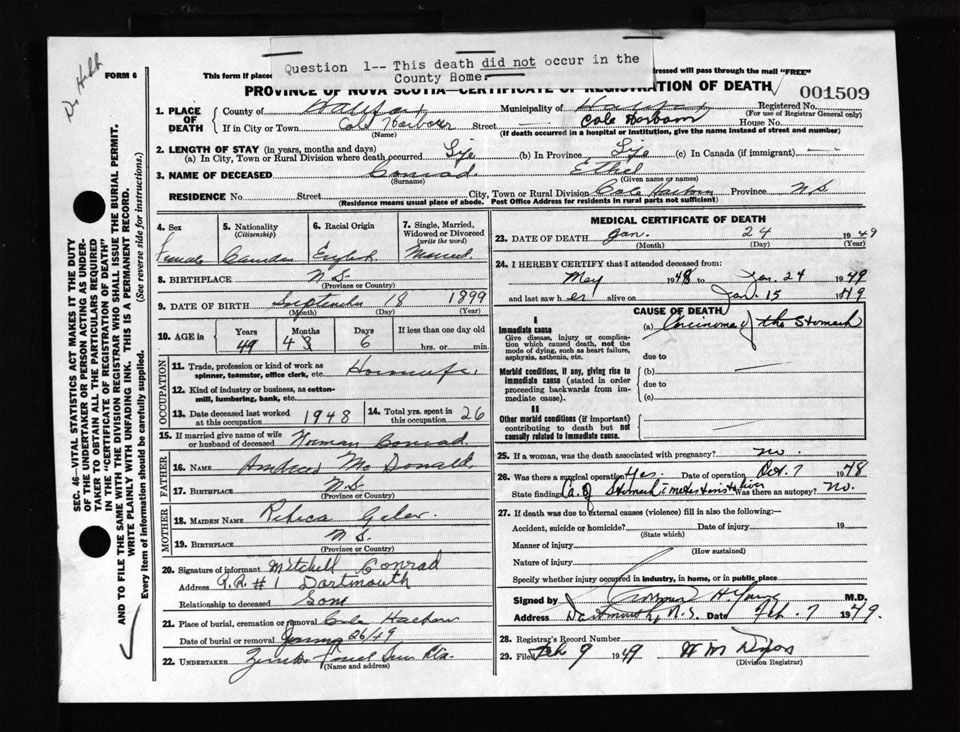 Dr Hebb
FORM 6
This form if placed
Question 1-- This death did not occur in the
County Home.
dressed will pass through the mail "FREE"
PROVINCE OF NOVA SCOTIA—CERTIFICATE OF REGISTRATION OF DEATH
001509
1. PLACE OF DEATH
County of Halifax Municipality of Halifax Registered No.
(For use of Registrar General only)
If in City or Town Cole Harbour Street Cole Harbour House No.
(Name) (If death occurred in a hospital or institution, give the name instead of street and number)
2. LENGTH OF STAY (in years, months and days)
(a) In City, Town or Rural Division where death occurred Life (b) In Province Life (c) In Canada (if immigrant)
3. NAME OF DECEASED Conrad Ethel
(Surname) (Given name or names)
RESIDENCE No. Street City, Town or Rural Division Cole Harbour Province N S
(Residence means usual place of abode. Post Office Address for residents in rural parts not sufficient)
SEC. 46—VITAL STATISTICS ACT MAKES IT THE DUTY
OF THE UNDERTAKER OR PERSON ACTING AS UNDER-
TAKER TO OBTAIN ALL THE PARTICULARS REQUIRED
IN THE "CERTIFICATE OF REGISTRATION OF DEATH"
AND TO FILE THE SAME WITH THE DIVISION REGISTRAR WHO SHALL ISSUE THE BURIAL PERMIT.
WRITE PLAINLY WITH UNFADING INK. THIS IS A PERMANENT RECORD.
Every item of information should be carefully supplied. (See reverse side for instructions.)
4. Sex 5. Nationality (Citizenship) 6. Racial Origin 7. Single, Married, Widowed or Divorced (write the word)
Female Canadian English Married
8. BIRTHPLACE N.S.
(Province or Country)
9. DATE OF BIRTH September 18 1899
(Month) (Day) (Year)
10. AGE in Years Months Days If less than one day old
49 4 3 6 hrs. or min.
OCCUPATION
11. Trade, profession or kind of work as spinner, teamster, office clerk, etc. Housewife
12. Kind of industry or business, as cotton-mill, lumbering, bank, etc.
13. Date deceased last worked at this occupation 1948 14. Total yrs. spent in this occupation 26
15. If married give name of wife or husband of deceased Norman Conrad
FATHER
16. NAME McDonald
17. BIRTHPLACE N.S.
(Province or Country)
MOTHER
18. MAIDEN NAME
19. BIRTHPLACE N S.
(Province or Country)
20. Signature of informant Mitchell Conrad
Address R.R. # 1 Dartmouth
Relationship to deceased Son
21. Place of burial, cremation or removal Cole Harbour
Date of burial or removal 26/49
22. UNDERTAKER
(Name and address)
MEDICAL CERTIFICATE OF DEATH
23. DATE OF DEATH Jan. 24 1949
(Month) (Day) (Year)
24. I HEREBY CERTIFY that I attended deceased from:
May 1948 to Jan. 24 1949
and last saw h er alive on Jan. 15 1949
CAUSE OF DEATH
I
Immediate cause
Give disease, injury or complica-
tion which caused death, not the
mode of dying, such as heart failure,
asphyxia, asthenia, etc.
(a) Carcinoma of the Stomach
due to
Morbid conditions, if any, giving rise to
immediate cause (stated in order
proceeding backwards from im-
mediate cause).
(b)
due to
(c)
II
Other morbid conditions (if important)
contributing to death but not
causally related to immediate cause.
25. If a woman, was the death associated with pregnancy? no.
26. Was there a surgical operation? Yes. Date of operation Oct. 7 1948
State findings Ca. of Stomach c metastasis to liver Was there an autopsy? no.
27. If death was due to external causes (violence) fill in also the following:—
Accident, suicide or homicide? Date of injury 19
(State which)
Manner of injury
(How sustained)
Nature of injury
Specify whether injury occurred in industry, in home, or in public place
Signed by H. Young M.D.
Address Dartmouth, N.S. Date Feb. 7 1949.
28. Registrar's Record Number
29. Filed Feb 9 1949 W M
(Division Registrar)